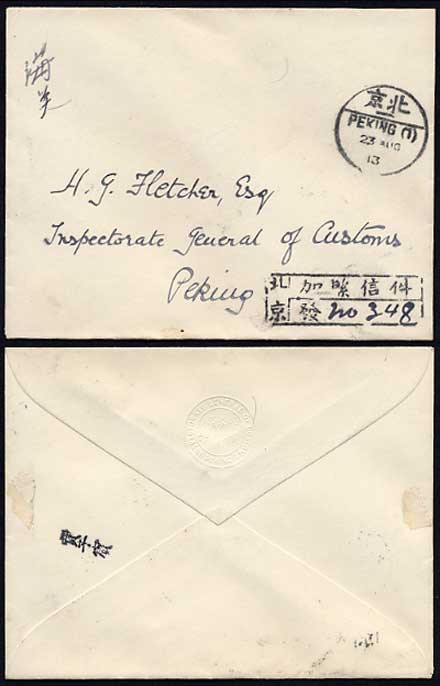 海
北京
PEKING (1)
23 AUG
13
H. G. Fletcher, Esq
Inspectorate General of Customs
Peking
北京
加緊信件
發 No 348